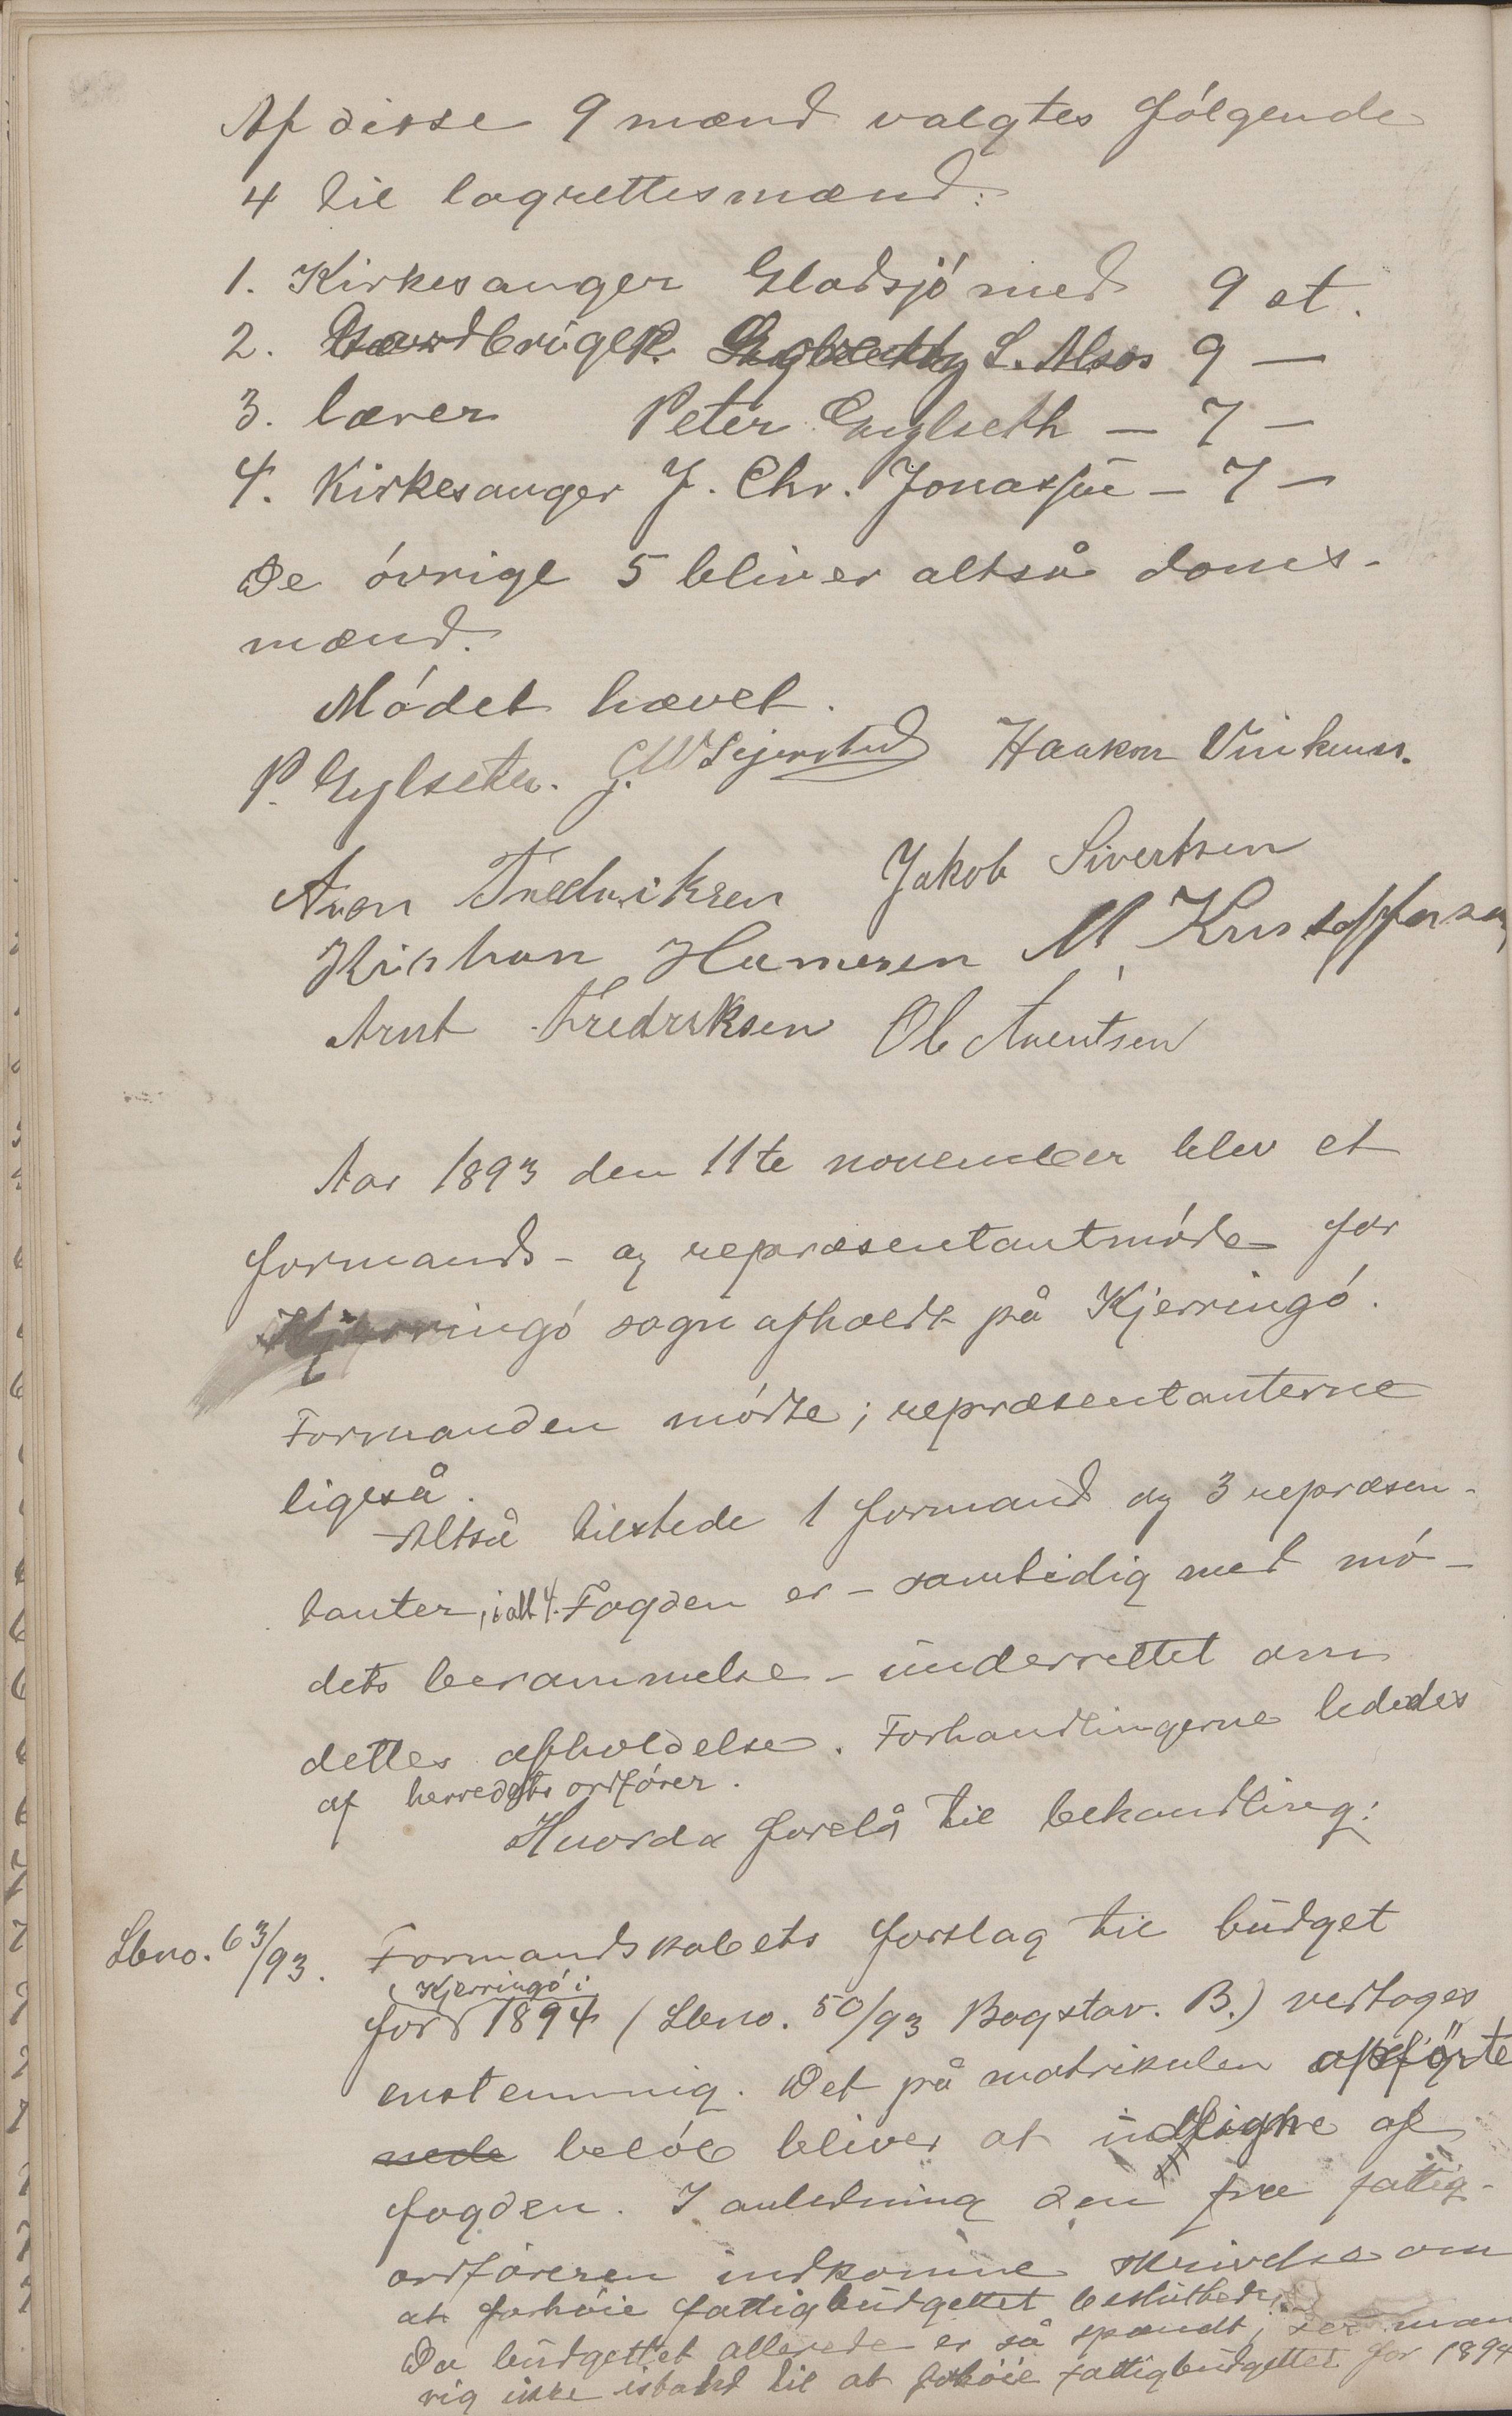 Af disse 9 mænd valgtes følgende
4 til lagrettesmænd:
1. Kirkesanger Gladsjø med 9 st.
2. Gaardbruger P. L. Alsos 9 —
3. lærer Peter Gylseth — 7 —
4. Kirkesanger J. Chr. Jonassen — 7 —
De øvrige 5 bliver altså doms-
mænd.
Mødet hævet.
P. Gylseth. J.W Sejersted Haakon Vinkenes.
Aron Fredriksen Jakob Sivertsen
Kristian Hamersen M. Kristoffersen
Arnt Fredriksen Ole Arentsen
Aar 1893 den 11te november blev et
formands- og repræsentantmøde for
Kjerringø sogn afholdt på Kjerringø.
Formanden mødte; repræsentanterne
ligeså.
Altså tilstede 1 formand og 3 repræsen-
tanter, i alt 4. Fogden er – samtidig med mø-
dets berammelse – underrettet om
dettes afholdelse. Forhandlingerne lededes
af herredets ordfører.
Hvorda forelå til behandling:
Lbno. 63/93. Formandskabets forslag til budget
for Kjerringø i 1894 (Lbno. 50/93 Bogstav. B.) vedtoges
enstemmig. Det på matrikulen opførte
nede beløb bliver at udligne af
fogden. I anledning den fra fattig-
ordføreren indkomne skrivelse om
at forhøie fattigbudgettet besluttedes:
Da budgettet allerede er så spændt, ser man
sig ikke istand til at forhøie fattigbudgettet for 1894